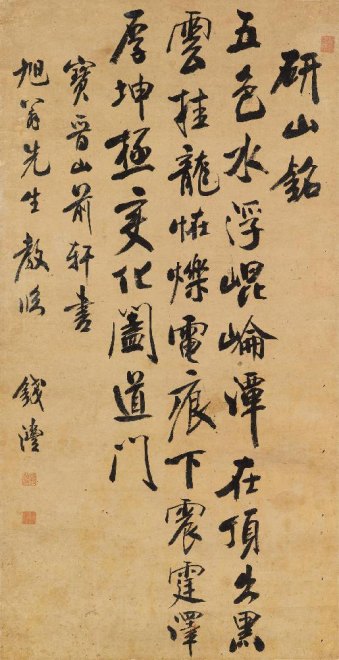 研山銘
五色水浮崐崘潭在頂出黑
雲挂龍恠爍電痕下震霆澤
厚坤極變化闔道門
寶晋山前軒書
旭翁先生教臨
錢灃